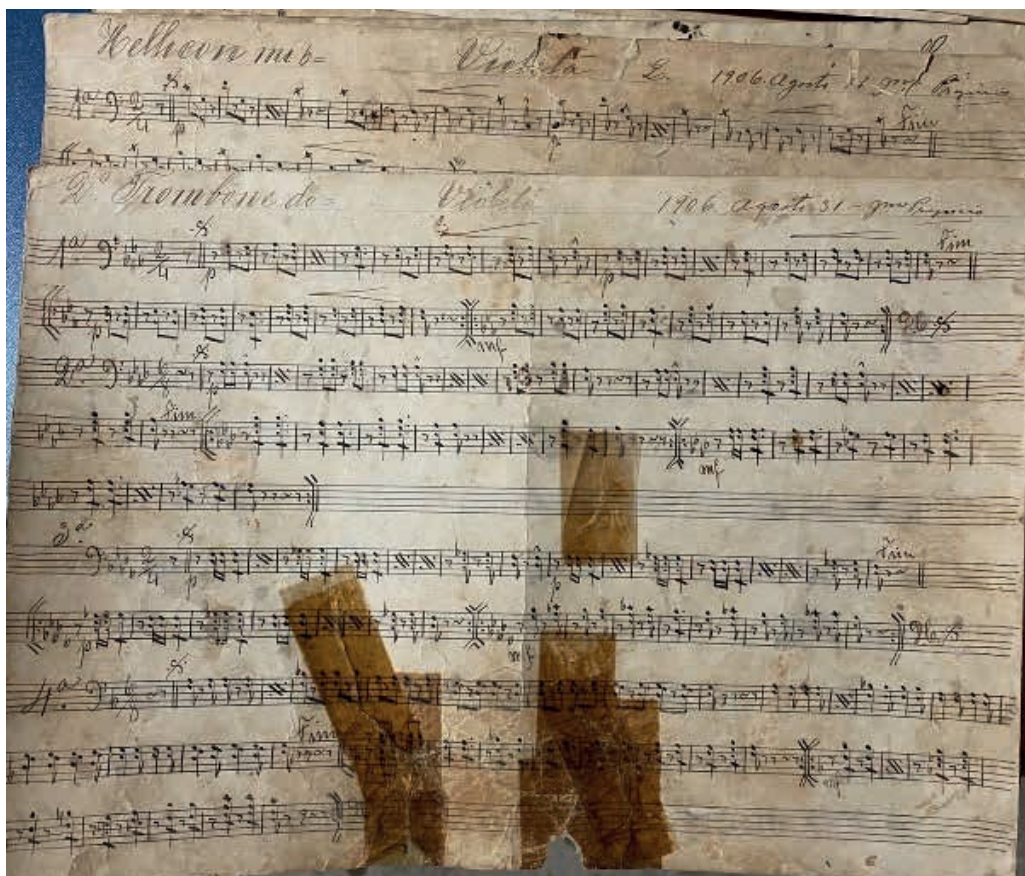 Helicon mib= Violeta 1906. Agosto 31
1ª p Fim
2º Trombone do= Violeta 1906. Agosto 31 -
1ª p p Fim
p mf D.C.
2ª p
Fim mf
3ª p p Fim
p mf D.C.
4ª
Fim mf